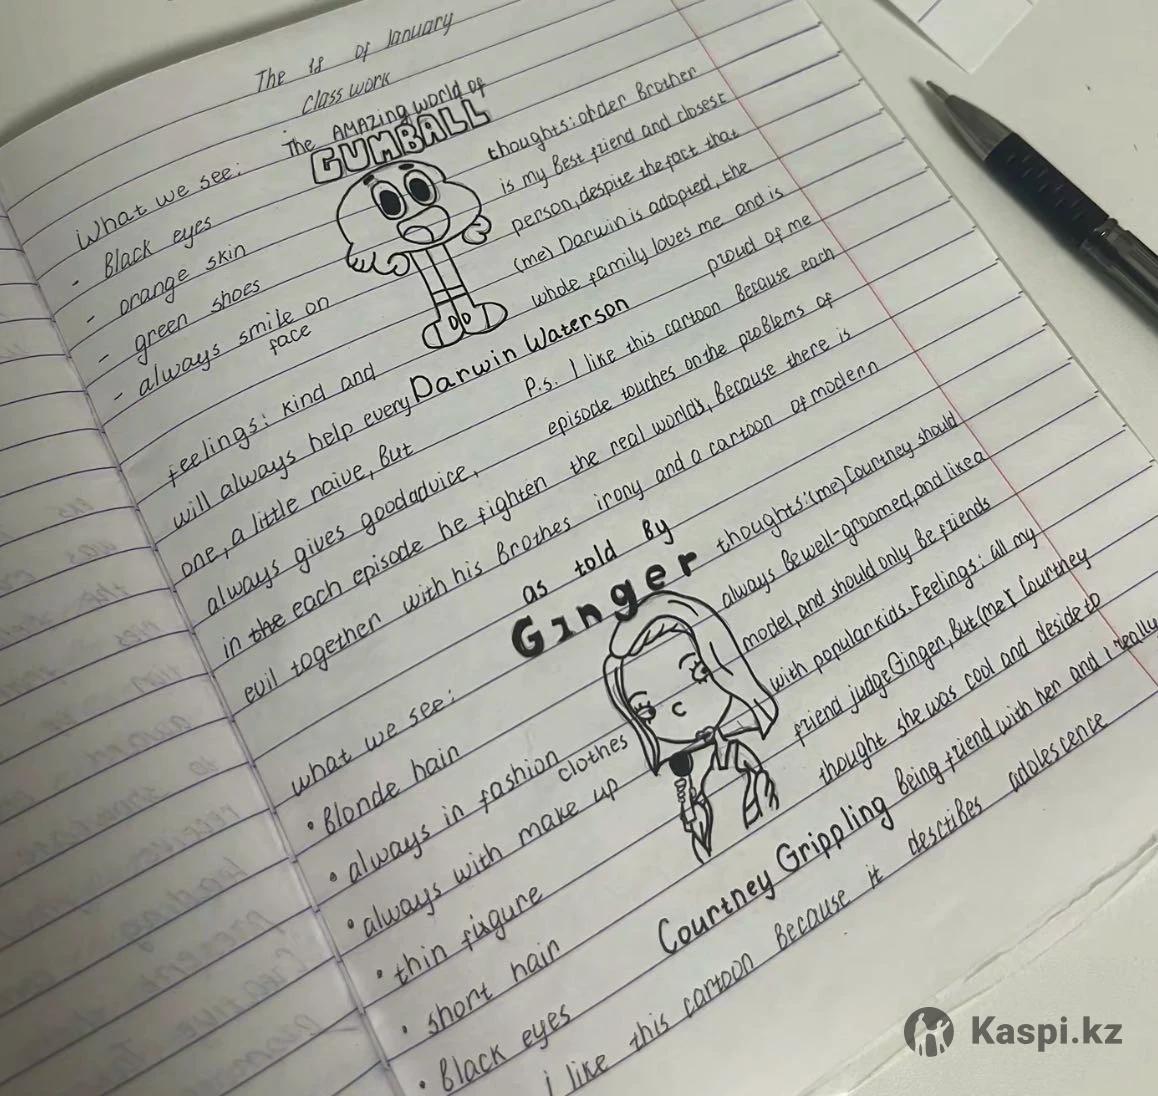 The 18 of January
Class work
The AMAZing world of
GUMBALL
What we see:
- Black eyes
- orange skin
- green shoes
- always smile on
face
thoughts: order Brother
is my Best friend and closest
person, despite the fact that
(me) Darwin is adopted, the
whole family loves me and is
proud of me
Darwin Waterson
feelings: kind and
will always help every
one, a little naive, But
always gives good advice,
in the each episode he fighten
evil together with his Brothes
P.s. I like this cartoon Because each
episode touches on the problems of
the real worlds, Because there is
irony and a cartoon of modern
as told By
Ginger
what we see:
• Blonde hair
• always in fashion
clothes
• always with make up
• thin figure
• short hair
• Black eyes
thoughts: (me) Courtney should
always Be well-groomed, and like a
model, and should only Be friends
with popular kids. Feelings: all my
friend judge Ginger, But (me) Courtney
thought she was cool and deside to
Being friend with her and i really
Courtney Grippling
i like this cartoon Because it describes adolescence
Kaspi.kz